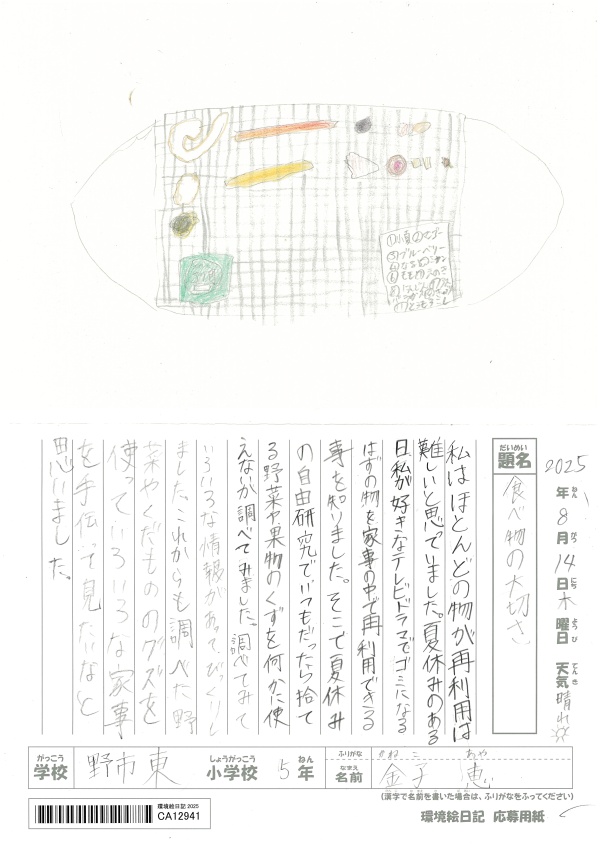 ①小夏②マンゴー
③ブルーベリー
だいめい
題名
食べ物の大切さ
2025年8月14日木曜日 天気晴れ
ねん がつ にち ようび てんき
私はほとんどの物が再利用は
難しいと思でいました。夏休みのある
日、私が好きなテレビドラマでゴミになる
はずの物を家事の中で再利用できる
事を知りました。そこで夏休み
の自由研究でいつもだったら捨て
る野菜や果物のくずを何かに使
えないか調べてみました。調べてみて
いろいろな情報があって、びっくりし
ました。これからも調べた野
菜やくだもののクズを
使っていろいろな家事
を手伝って見たいなと
思いました。
がっこう しょうがっこう ねん
学校 野市東 小学校 5年
ふりがな かねこ あや
なまえ
名前 金子 恵
(漢字で名前を書いた場合は、ふりがなをふってください)
環境絵日記 2025
CA12941
環境絵日記 応募用紙